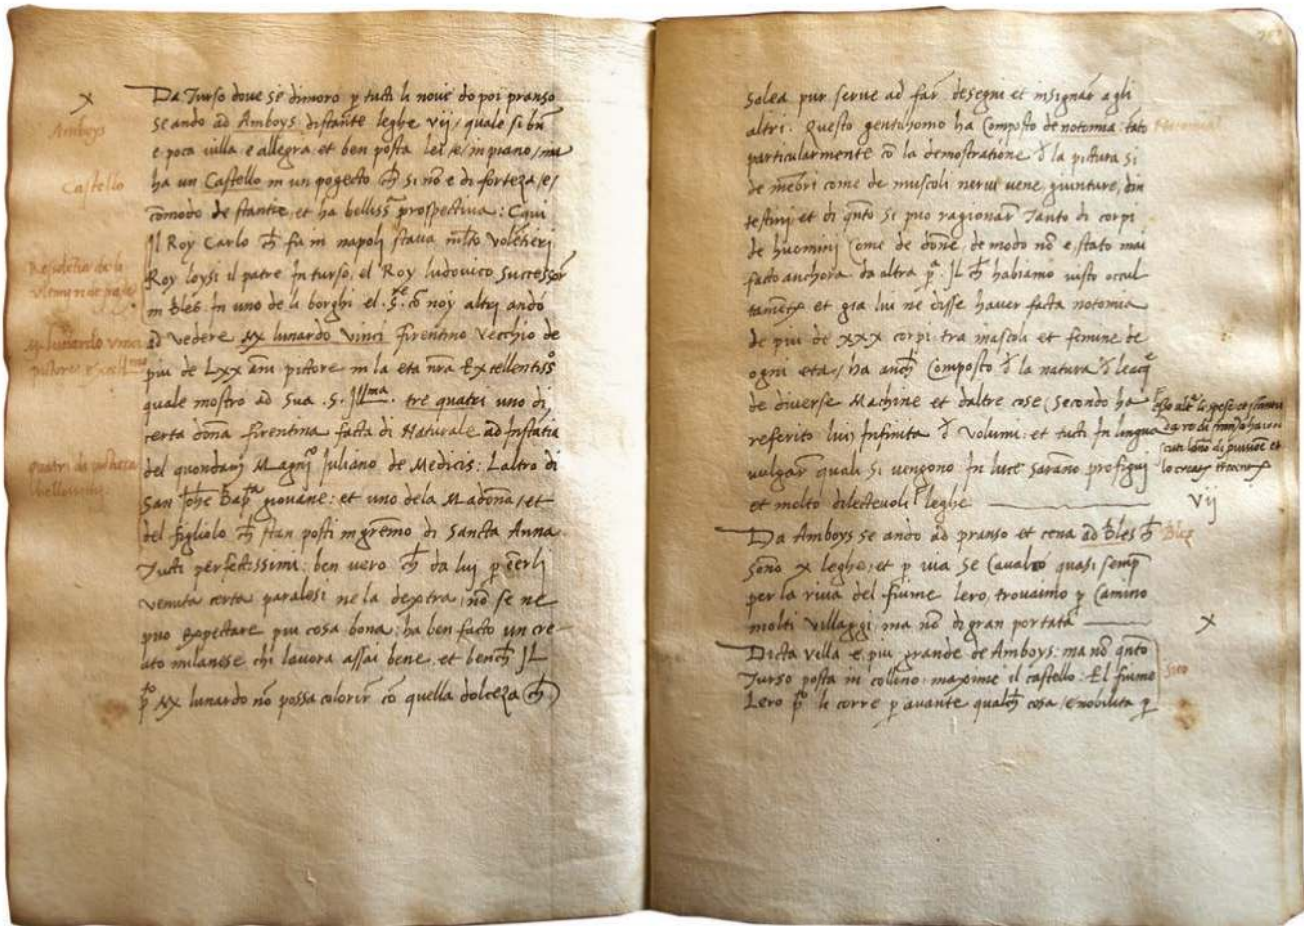 x
Amboys
Castello
Mx lunardo vinci
Da Turso dove se dimoro p tucti li nove do poi pranso
se ando ad Amboys distante leghe vij, quale si bn
e poca villa e allegra et ben posta lei /e/ in piano /ma
ha un Castello in un pogecto ch si no e di forteza /e/
comodo de stantie et ha belliss prospectiva: C qui
Jl Roy Carlo ch fu in napoli stava mlto voletieri
Roy loysi il patre In turso, el Roy ludovico successor
in Bles. In uno de li borghi el .S. co noy altri andò
ad vedere Mx lunardo vinci firentino vecchio de
piu de Lxx anni pictore in la eta nra Excellentiss
quale mostro ad Sua .S. Jllma. tre quatri uno di
certa dona firentina facta di Naturale ad Instatia
del quondam Magco Juliano de Medicis: Laltro di
San Johe Bapta giovane: et uno dela Madona /et
del figliolo ch stan posti in gremo di Sancta Anna
Tucti perfectissimi: ben vero ch da lui p eerli
venuta certa paralesi ne la dextra, no se ne
puo Expectare piu cosa bona: ha ben facto un cre-
ato milanese chi lavora assai bene. et bench JL
pto Mx lunardo no possa colorir co quella dolceza ch
solea pur serve ad far desegni et insignar agli
altri. Questo gentilhomo ha Composto de notomia tato
particularmente co la demostratione d la pictura si
de mebri come de muscoli nervi vene, giunture, din
testini et di qnto si puo ragionar Tanto di corpi
de huomini Come de done, de modo no e stato mai
facto anchora da altra pa. JL ch habiamo visto occul
tamete et gia lui ne disse haver facta notomia
de piu de xxx corpi tra mascoli et femine de
ogni eta /ha anch Composto d la natura d leacq
de diverse Machine et daltre cose Secondo ha
referito lui Infinita d volumi: et tucti In lingua
vulgar quali si vengono In luce sarano profigui
et molto dilectevoli leghe
vij
Da Amboys se ando ad pranso et cena ad Bles ch
Bles
sono x leghe et p via se Cavalco quasi semp
per la riva del fiume lero, trovaimo p Camino
molti villaggi ma no di gran portata
x
Dicta villa e piu grande de Amboys: ma no qnto
Turso posta in collino: maxime il castello: El fiume
sito
Lero pto li corre p avante qualch cosa /e nobilita p